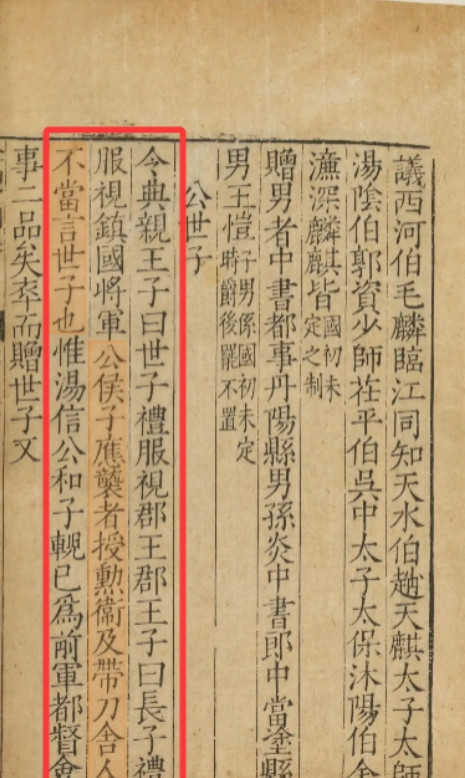 議西河伯毛麟臨江同知天水伯趙天麒太子太師
湯陰伯郭資少師茌平伯吳中太子太保沐陽伯金
濂深麟麒皆國初未定之制
贈男者中書都事丹陽縣男孫炎中書郎中當塗縣
男王愷子男係國初未定時爵後罷不置
公世子
今典親王子曰世子禮服視郡王郡王子曰長子禮
服視鎮國將軍公侯子應襲者授勳衞及帶刀舍人
不當言世子也惟湯信公和子輗已為前軍都督僉
事二品矣卒而贈世子又